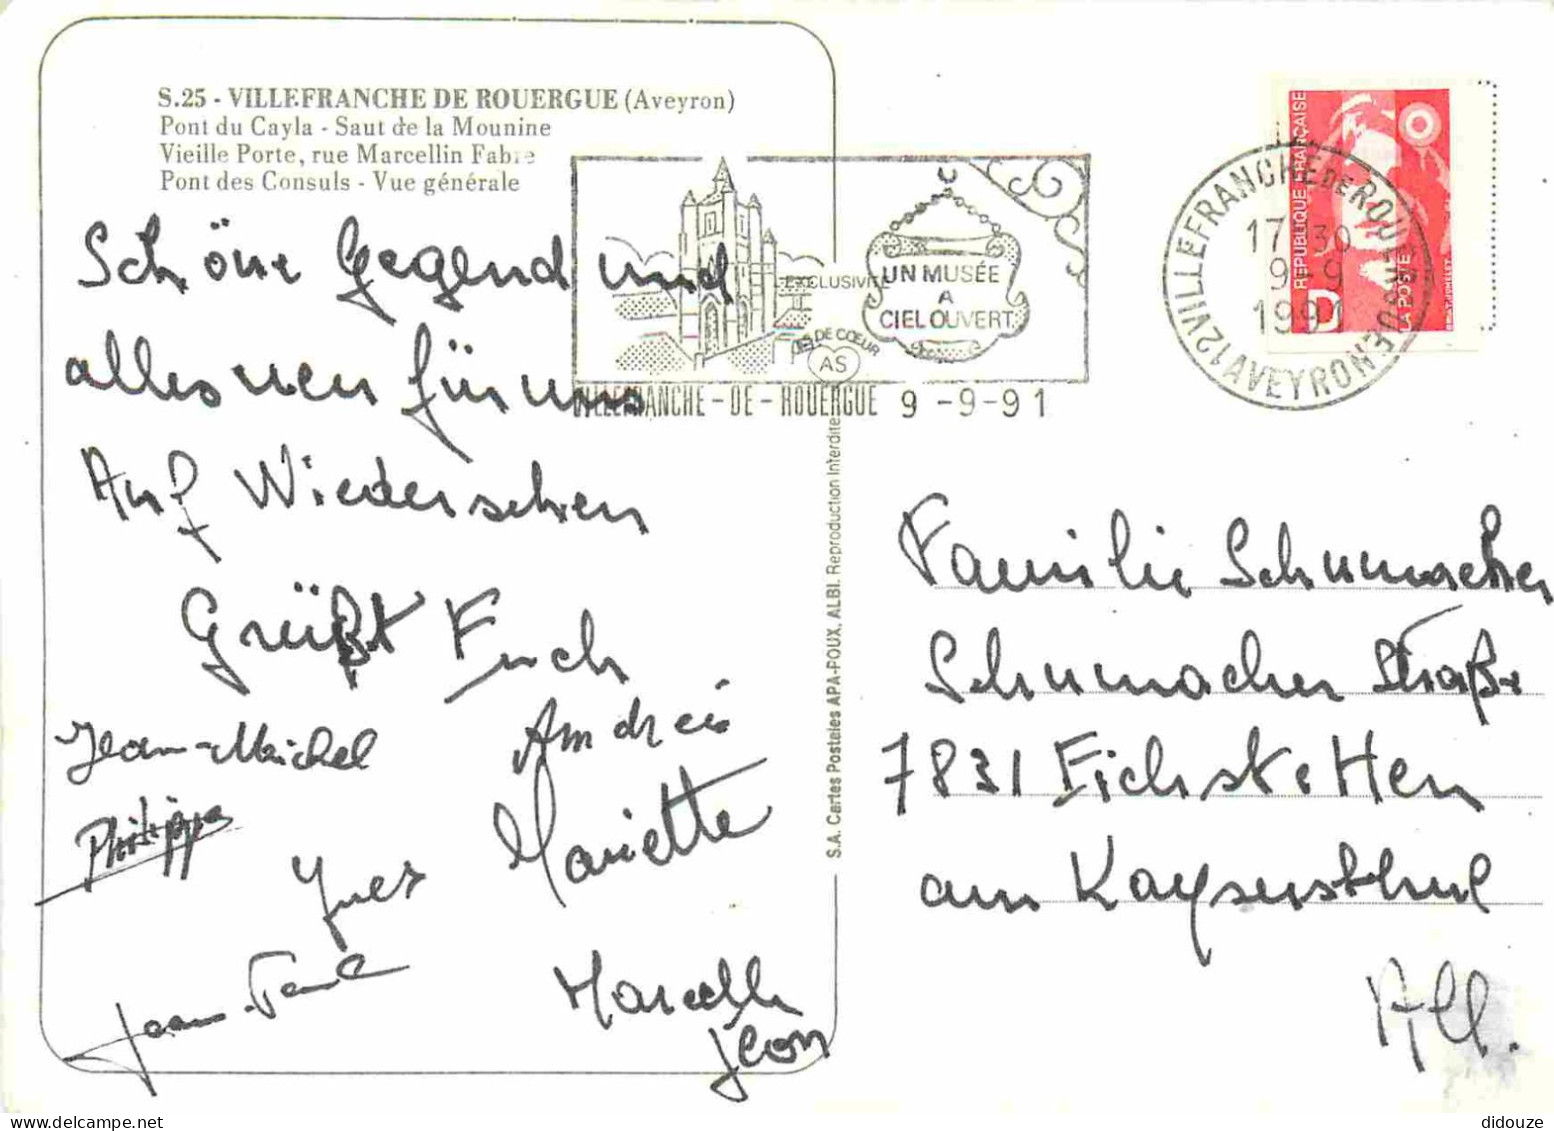 S.25 - VILLEFRANCHE DE ROUERGUE (Aveyron)
Pont du Cayla - Saut de la Mounine
Vieille Porte, rue Marcellin Fabre
Pont des Consuls - Vue générale
Schöne Gegend und
alles neu für uns
Auf Wiedersehen
Grüßt Euch
Jean-Michel
Andreis
Philippe
Mariette
Yves
Jean-Paul
Marcelle
Jean
L'EXCLUSIVITÉ
DE CŒUR
AS
UN MUSÉE
A
CIEL OUVERT
VILLEFRANCHE-DE-ROUERGUE 9-9-91
12 VILLEFRANCHE DE ROUERGUE AVEYRON
17-30
9-9
1991
REPUBLIQUE FRANÇAISE
D
LA POSTE
S.A. Cartes Postales APA-POUX, ALBI. Reproduction Interdite
Familie Schumacher
Schumacher Straße
7831 Eichstetten
am Kaysersthul
All.
didouze